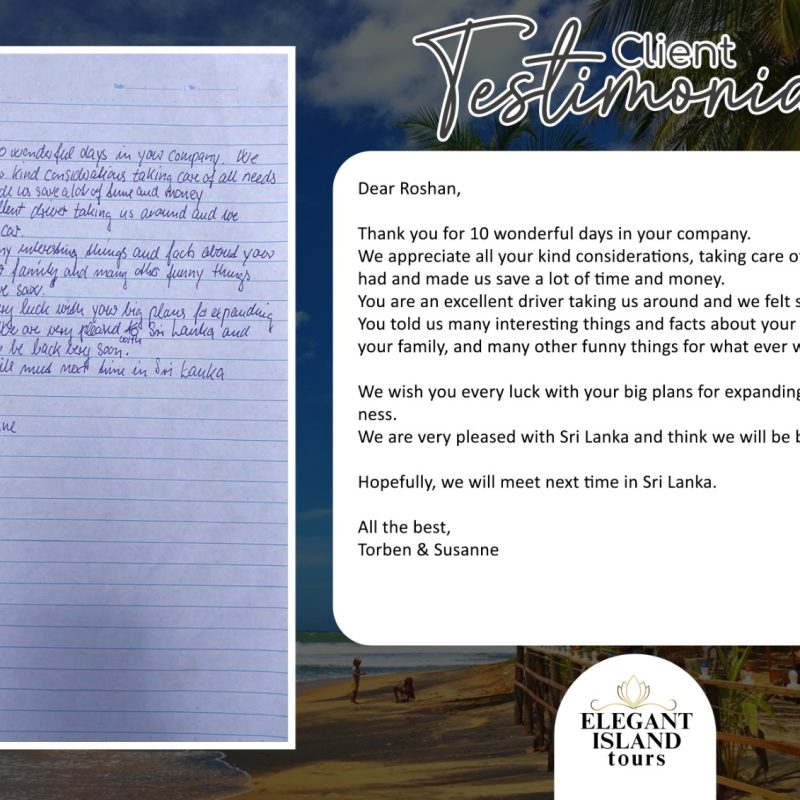 Date
No
o wonderful days in your company. We
kind considerations taking care of all needs
de us save a lot of time and money
llent driver taking us around and we
car.
ny interesting things and facts about your
family and many other funny things
e saw.
ery luck with your big plans for expanding
We are very pleased with Sri Lanka and
be back very soon.
will meet next time in Sri Lanka
ne
Client
Testimonia
Dear Roshan,
Thank you for 10 wonderful days in your company.
We appreciate all your kind considerations, taking care of
had and made us save a lot of time and money.
You are an excellent driver taking us around and we felt s
You told us many interesting things and facts about your
your family, and many other funny things for what ever w
We wish you every luck with your big plans for expanding
ness.
We are very pleased with Sri Lanka and think we will be b
Hopefully, we will meet next time in Sri Lanka.
All the best,
Torben & Susanne
ELEGANT
ISLAND
tours